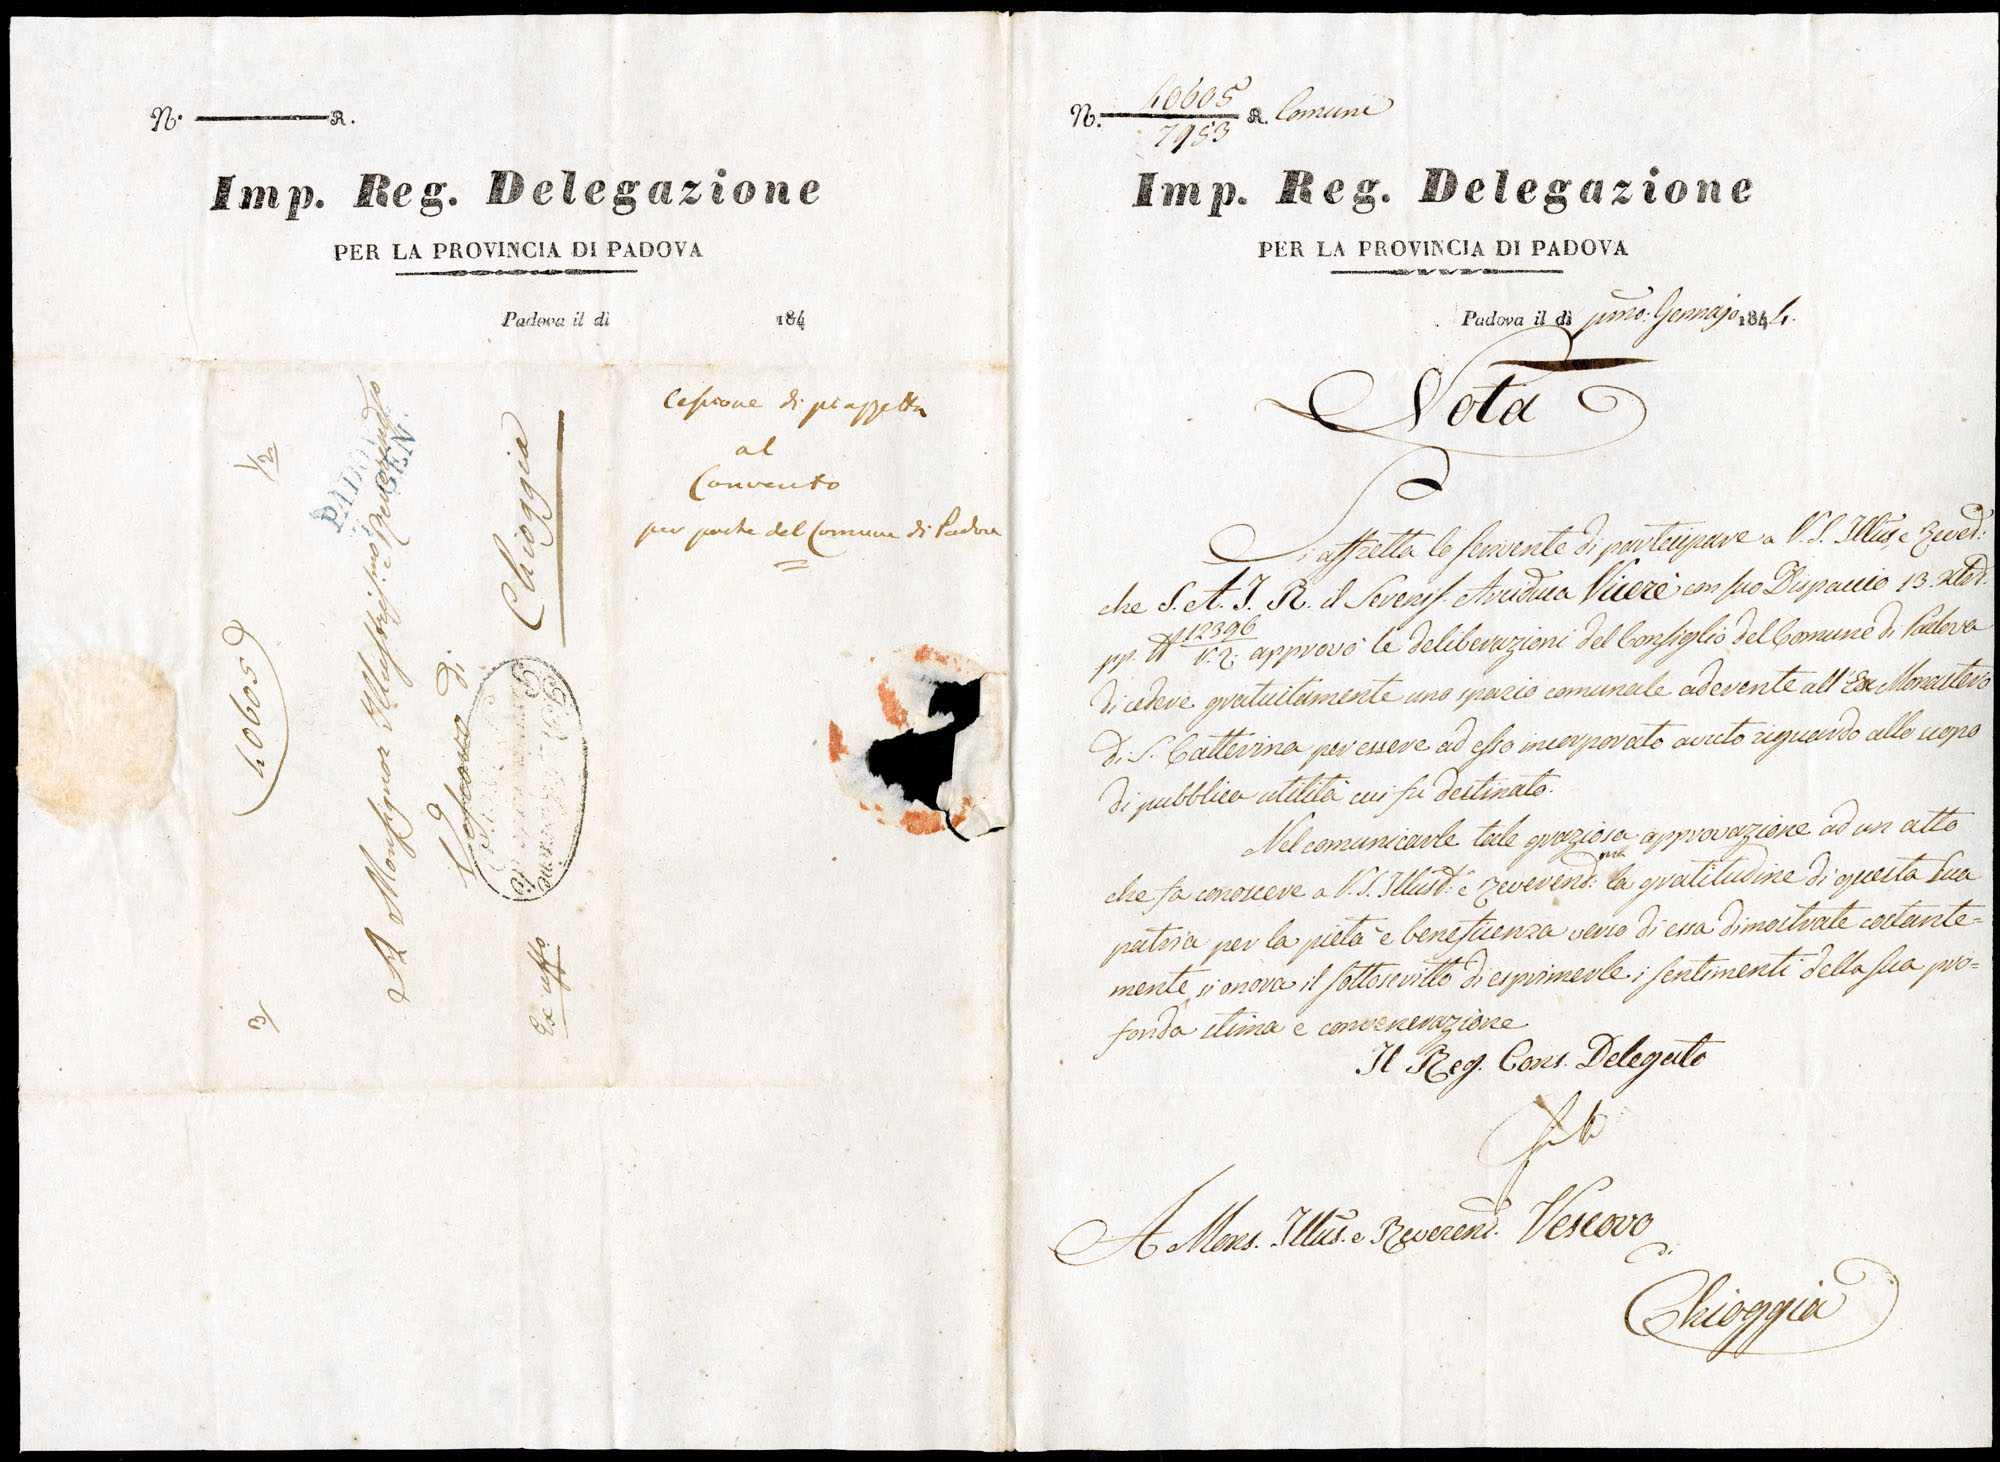 N. R.
Imp. Reg. Delegazione
PER LA PROVINCIA DI PADOVA
Padova il dì 184
Cessione di piazzetta
al
Convento
per parte del Comune di Padova
40605
1/2
3/
PADOVA
GEN
A Monsignor Illustriss.mo e Reverendo
Vescovo di
Chioggia
Ex uffo
N. 40605 R. Comuni
7953
Imp. Reg. Delegazione
PER LA PROVINCIA DI PADOVA
Padova il dì pmo: Gennajo 1844.
Nota
Si affretta lo scrivente di partecipare a V. S. Illus. e Revd:
che S. A. I. R. il Sereniss. Arciduca Vicerè con suo Dispaccio 13 Xbre
pp. N 12396 approvò le deliberazioni del Consiglio del Comune di Padova
V. 2.
di cedere gratuitamente uno spazio comunale aderente all' Ex Monastero
di S. Catterina per essere ad esso incorporato avuto riguardo allo scopo
di pubblica utilità cui fu destinato.
Nel comunicarle tale graziosa approvazione ad un atto
che fa conoscere a V. S. Illust: e reverend:ma la gratitudine di questa Sua
patria per la pietà e beneficenza verso di essa dimostrate costante=
mente, si onora il sottoscritto di esprimerle i sentimenti della sua pro=
fonda stima e convenerazione
Il Reg. Cons. Delegato
A Mons. Illus. e Reverend. Vescovo
di
Chioggia